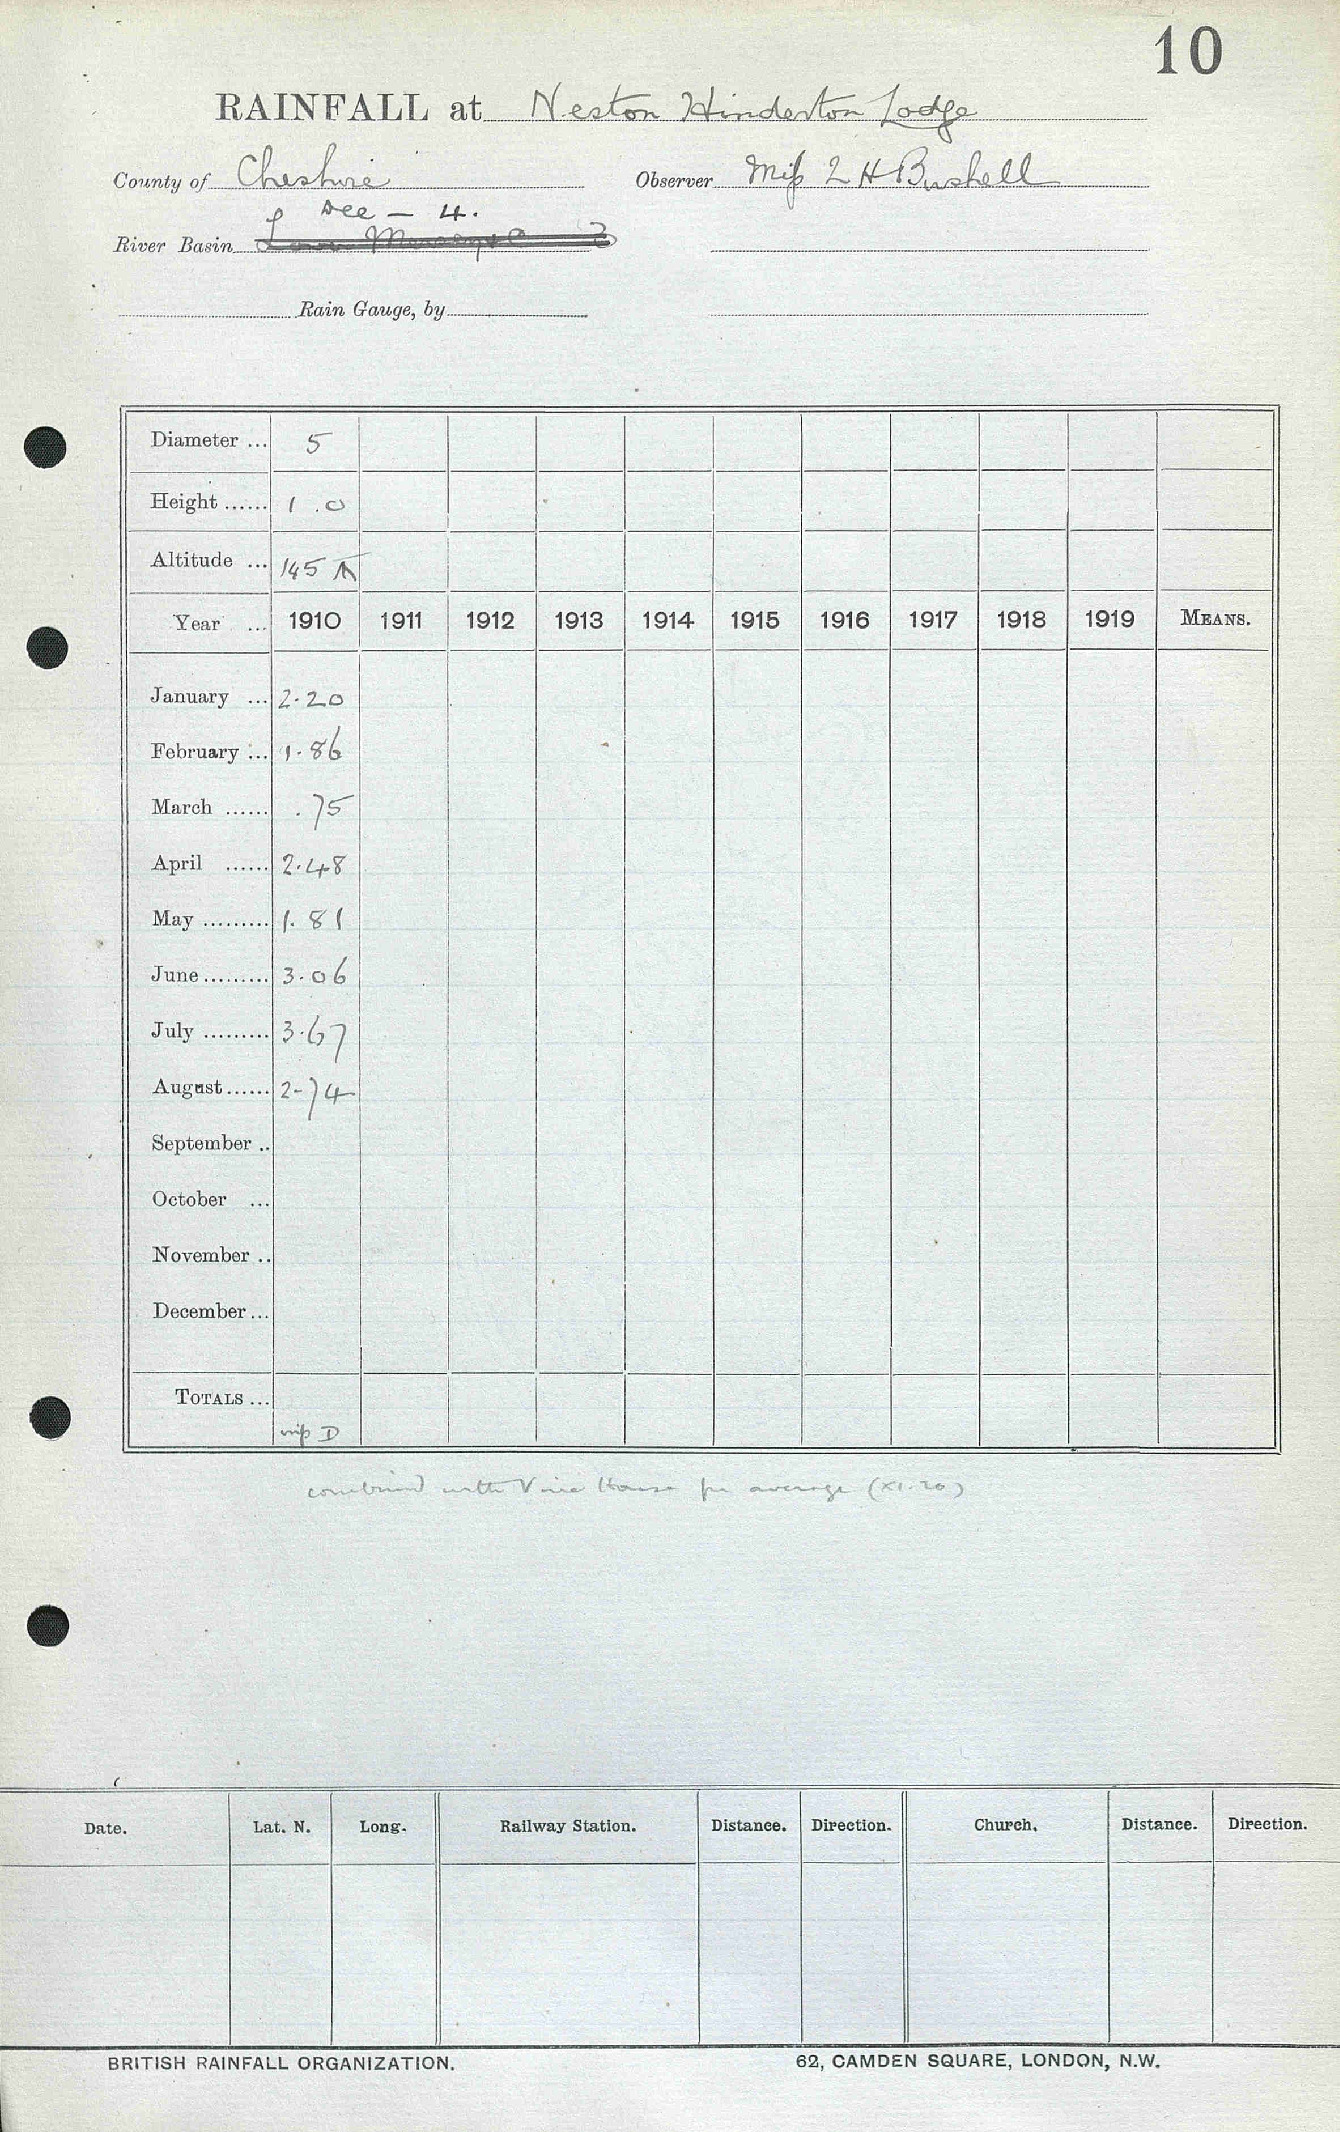 10
RAINFALL at Neston Hinderton Lodge
County of Cheshire Observer Miss L H Bushell
Dee - 4.
River Basin
Rain Gauge, by
Diameter ... 5
Height ...... 1.0
Altitude ... 145
Year ... 1910 1911 1912 1913 1914 1915 1916 1917 1918 1919 MEANS.
January ... 2.20
February ... 1.86
March ...... .75
April ...... 2.48
May ......... 1.81
June ......... 3.06
July ......... 3.67
August ...... 2.74
September ..
October ...
November ..
December ...
TOTALS ...
combined with Vine House for average (XI.20)
Date. Lat. N. Long. Railway Station. Distance. Direction. Church. Distance. Direction.
BRITISH RAINFALL ORGANIZATION. 62, CAMDEN SQUARE, LONDON, N.W.